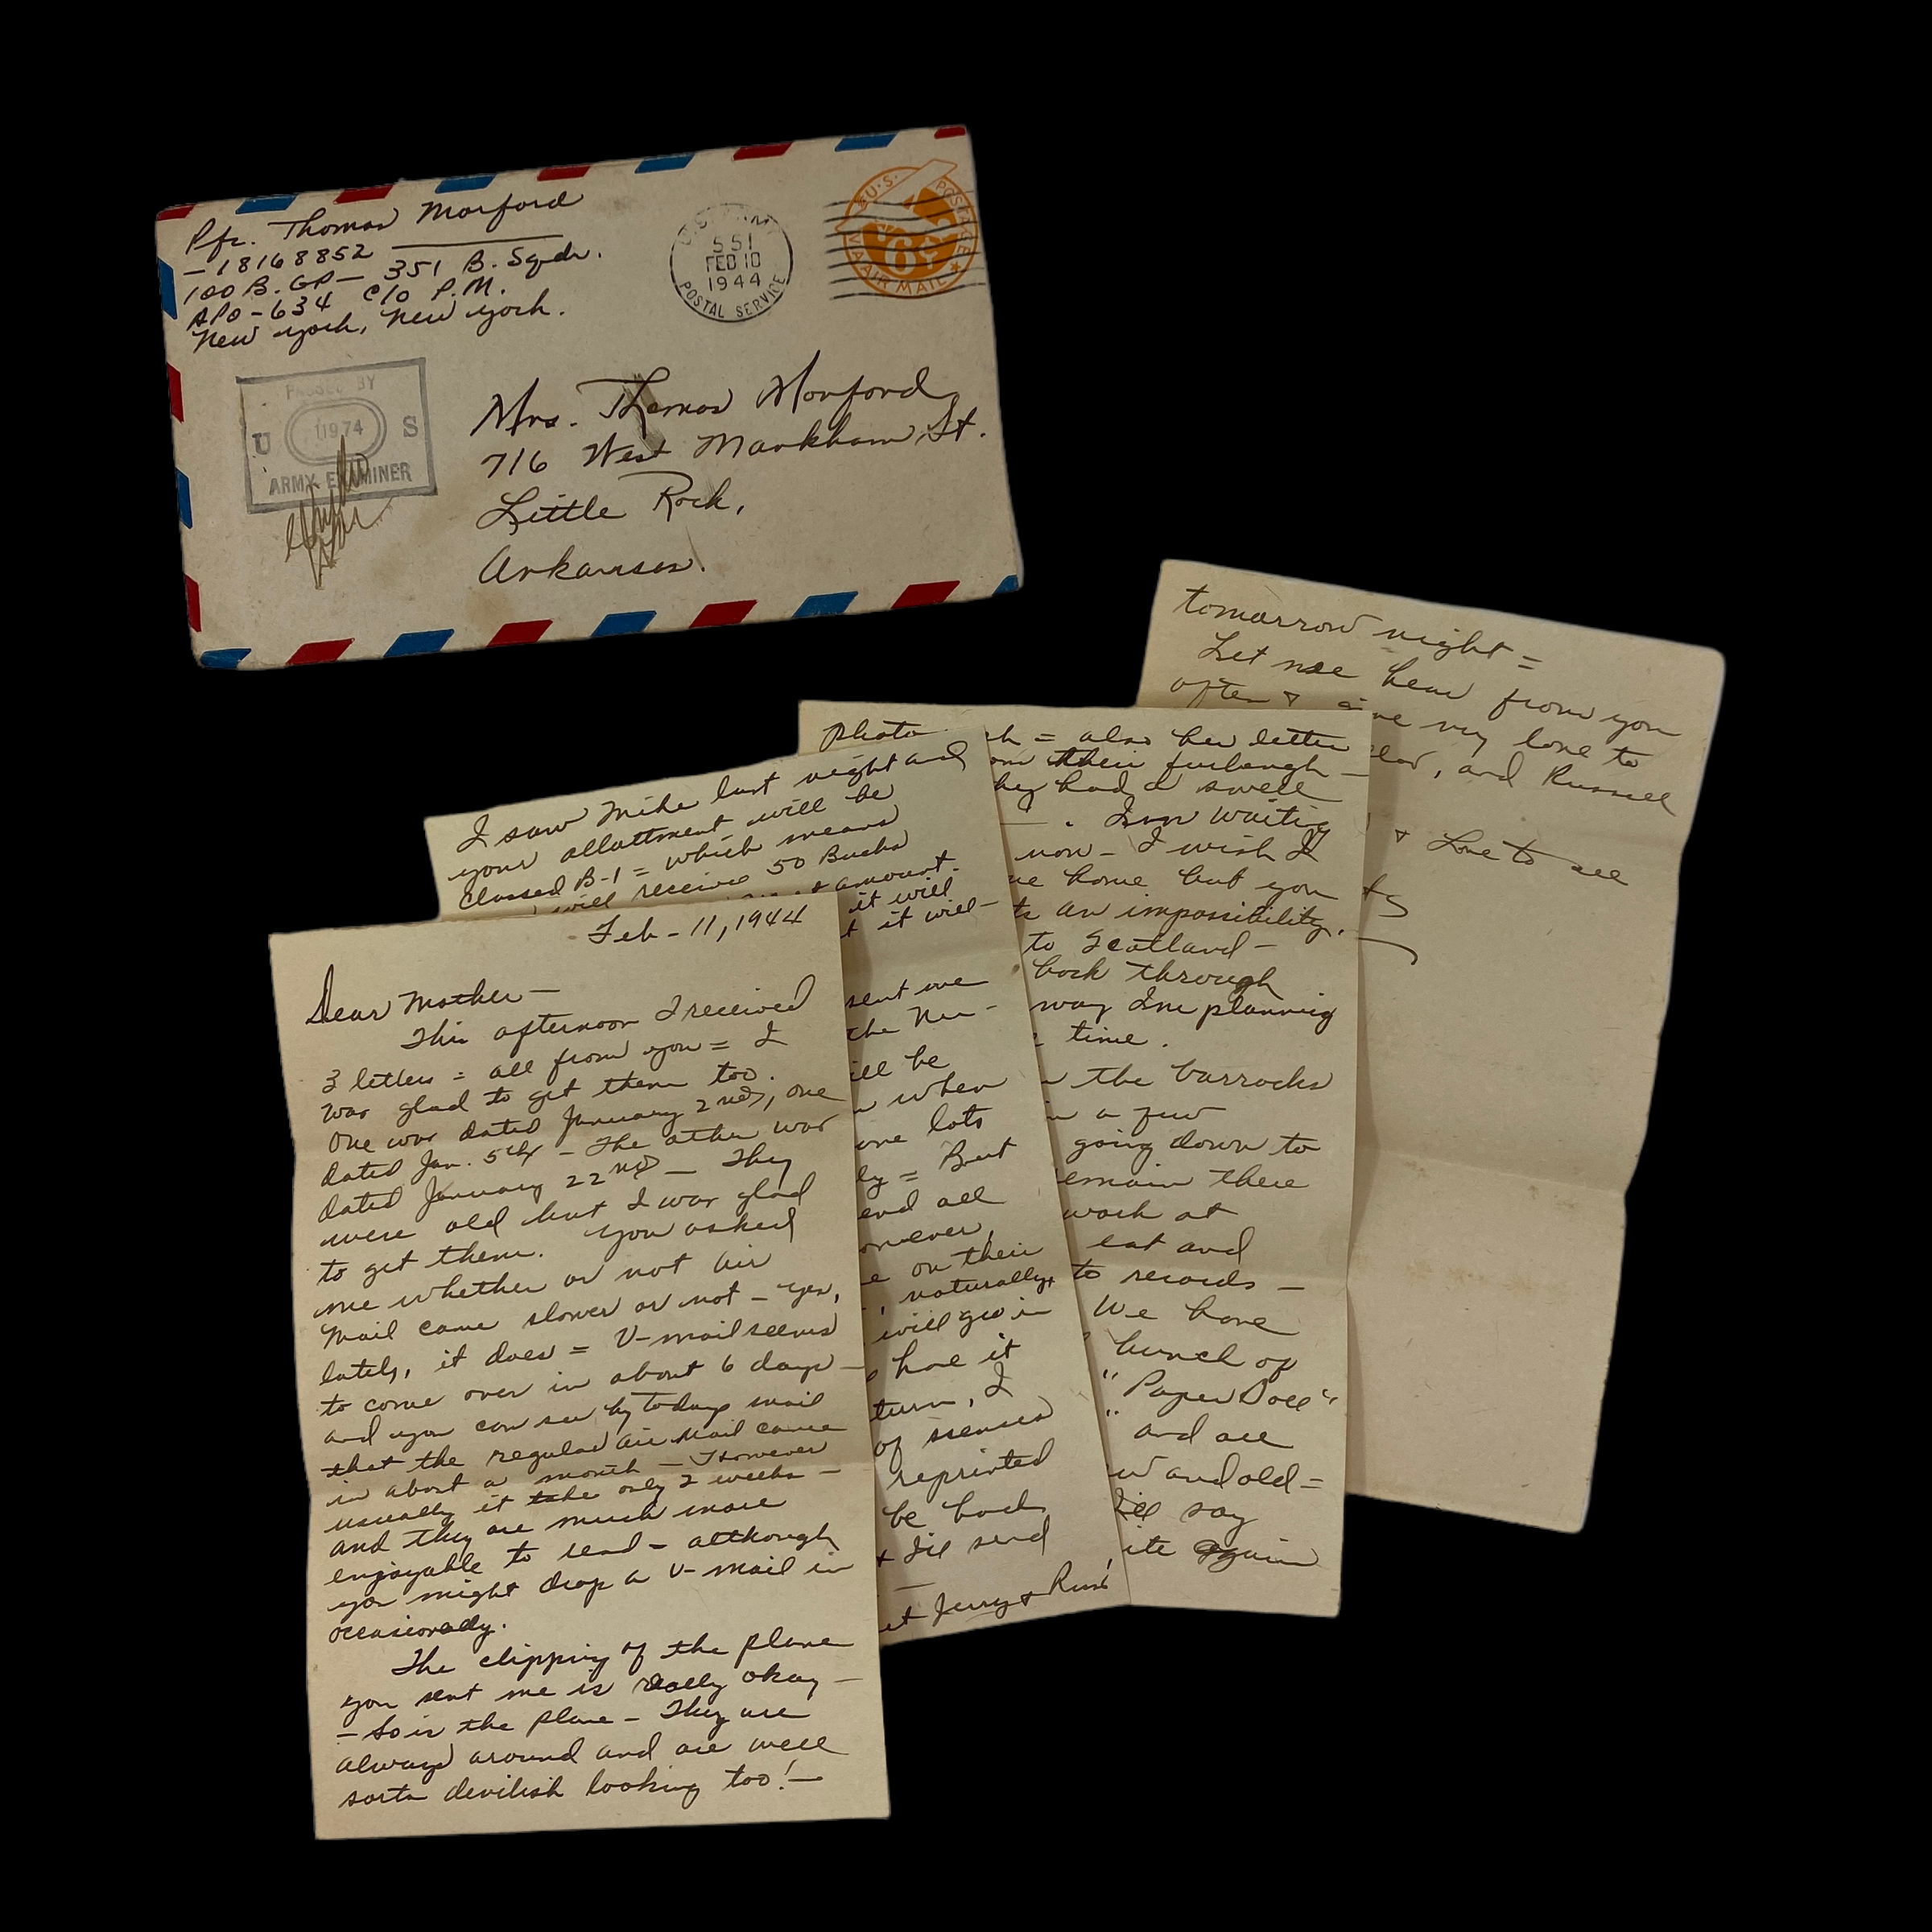 Pfc. Thomas Morford
-18168852
100 B. GP- 351 B. Sqdr.
APO-634 c/o P.M.
New York, New York.
U.S. ARMY
551
FEB 10
1944
POSTAL SERVICE
U.S. POSTAGE
6¢
VIA AIR MAIL
PASSED BY
U 11974 S
ARMY EXAMINER
Mrs. Thomas Morford
716 West Markham St.
Little Rock,
Arkansas.
Feb-11, 1944
Dear Mother-
This afternoon I received
3 letters = all from you = I
was glad to get them too.
One was dated January 2nd, one
dated Jan. 5th - The other was
dated January 22nd - They
were old but I was glad
to get them. You asked
me whether or not air
mail came slower or not - Yes,
lately, it does = V-mail seems
to come over in about 6 days -
and you can see by todays mail
that the regular air mail came
in about a month - However
usually it take only 2 weeks -
and they are much more
enjoyable to read - although
you might drop a V-mail in
occasionally.
The clipping of the plane
you sent me is really okay -
- So is the plane - They are
always around and are well
sorta devilish looking too! -
I saw Mike last night and
your allottment will be
Classed B-1 = which means
will receive 50 Bucks
amount.
it will
it will -
sent me
the Nu-
ill be
when
one lots
ly = But
end all
on their
, naturally,
will go in
it
turn, I
of
reprinted
be back
+ I'll send
Jerry & Russ'
photo
= also her letter
om their furlough -
hey had a swell
- . I'm waiting
now - I wish I
me home but you
ts an impossibility.
to Scotland -
back through
way I'm planning
time.
the barracks
in a few
going down to
emain there
work at
eat and
to records -
We have
bunch of
"Paper Doll"
" and all
w and old =
I'll say
ite again
tomorrow night =
Let me hear from you
often & give my love to
, and Russell
& Love to all